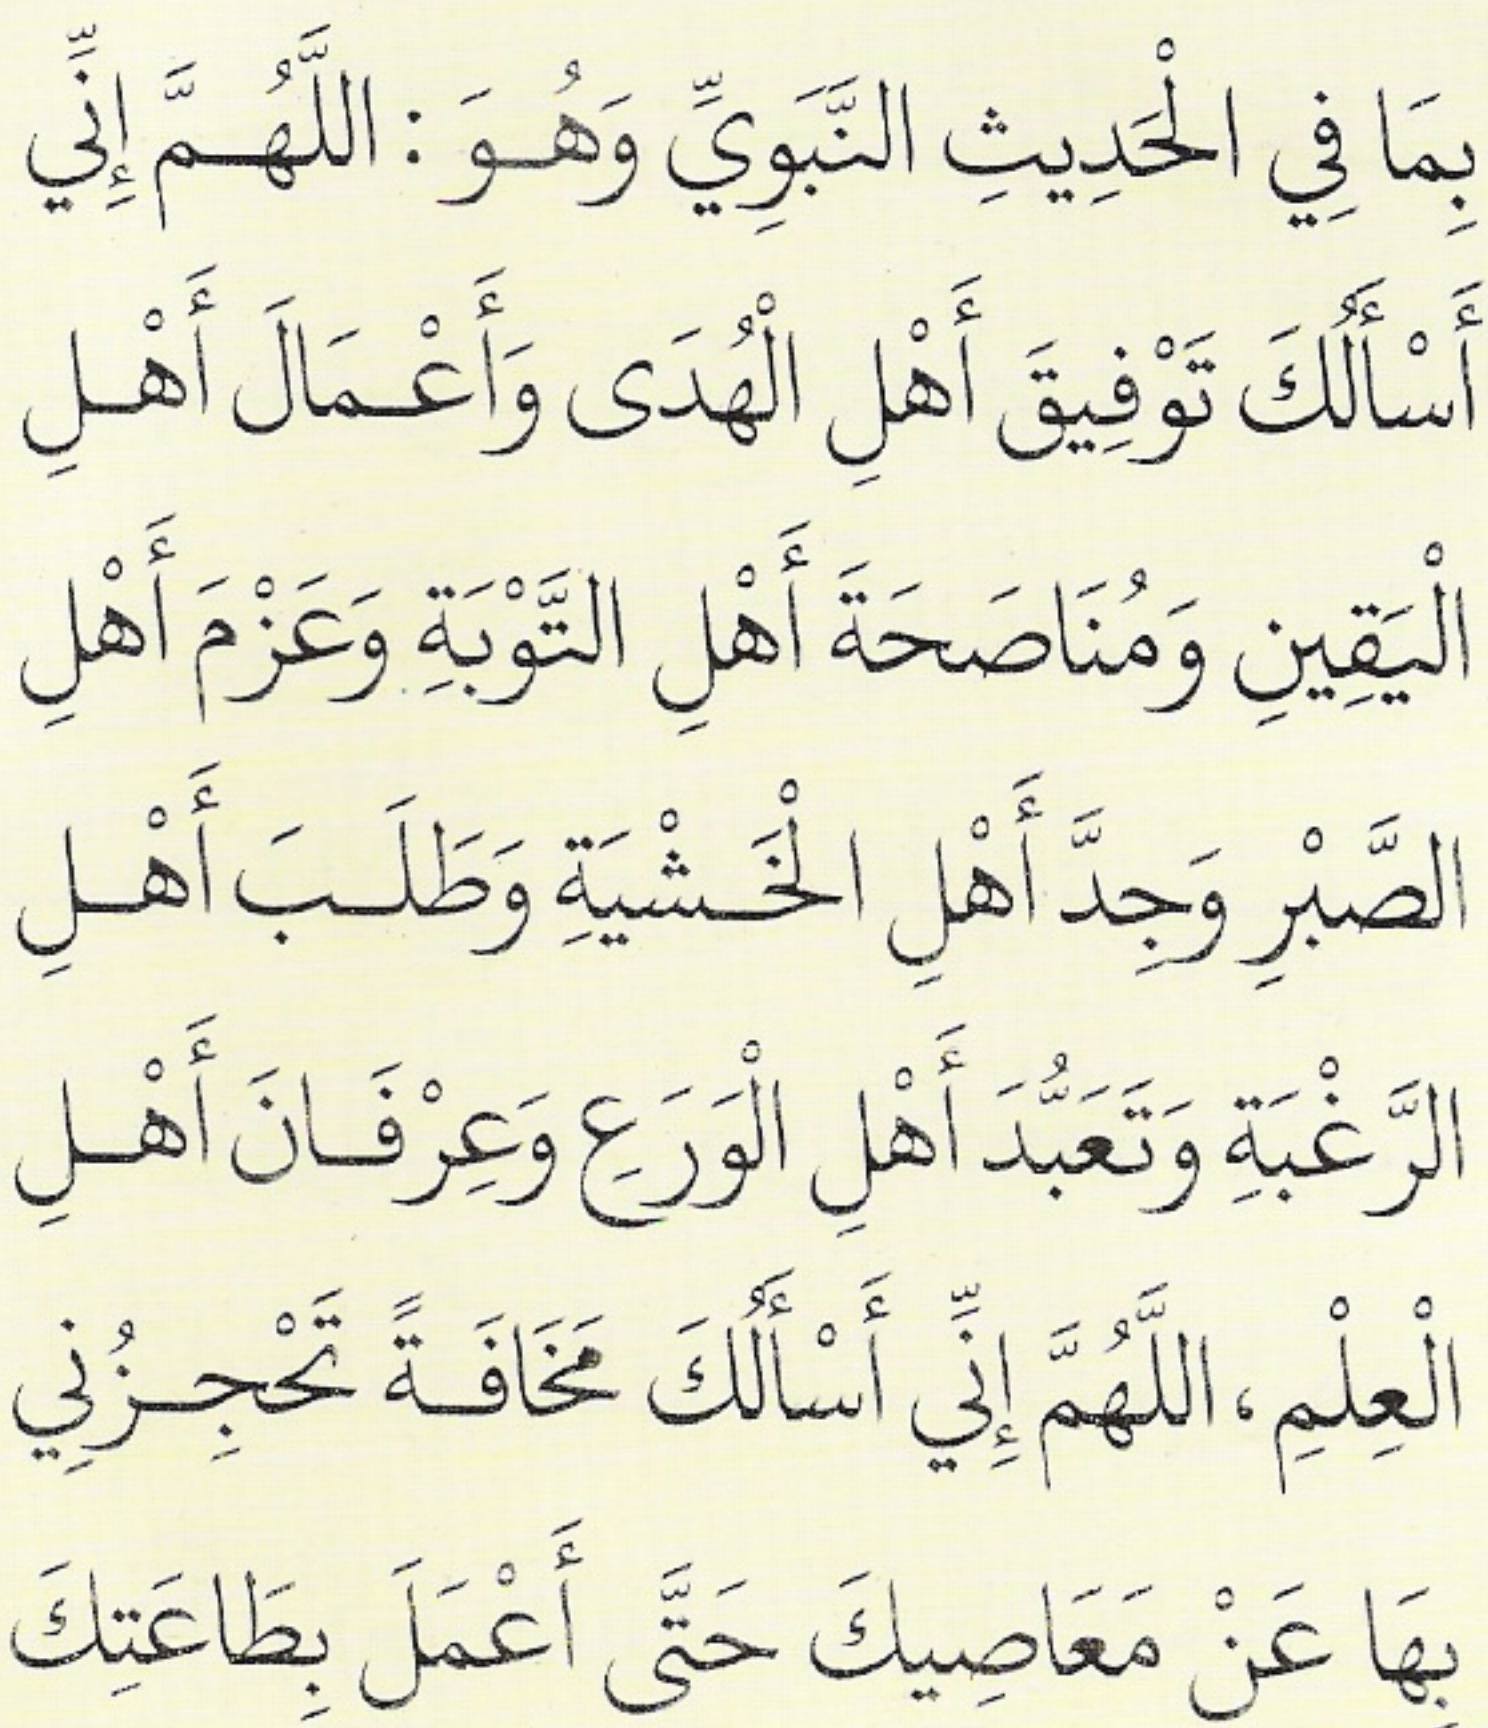 بِمَا فِي الْحَدِيثِ النَّبَوِيِّ وَهُوَ : اللَّهُمَّ إِنِّي
أَسْأَلُكَ تَوْفِيقَ أَهْلِ الْهُدَى وَأَعْمَالَ أَهْلِ
الْيَقِينِ وَمُنَاصَحَةَ أَهْلِ التَّوْبَةِ وَعَزْمَ أَهْلِ
الصَّبْرِ وَجِدَّ أَهْلِ الْخَشْيَةِ وَطَلَبَ أَهْلِ
الرَّغْبَةِ وَتَعَبُّدَ أَهْلِ الْوَرَعِ وَعِرْفَانَ أَهْلِ
الْعِلْمِ ، اللَّهُمَّ إِنِّي أَسْأَلُكَ مَخَافَةً تَحْجِزُنِي
بِهَا عَنْ مَعَاصِيكَ حَتَّى أَعْمَلَ بِطَاعَتِكَ